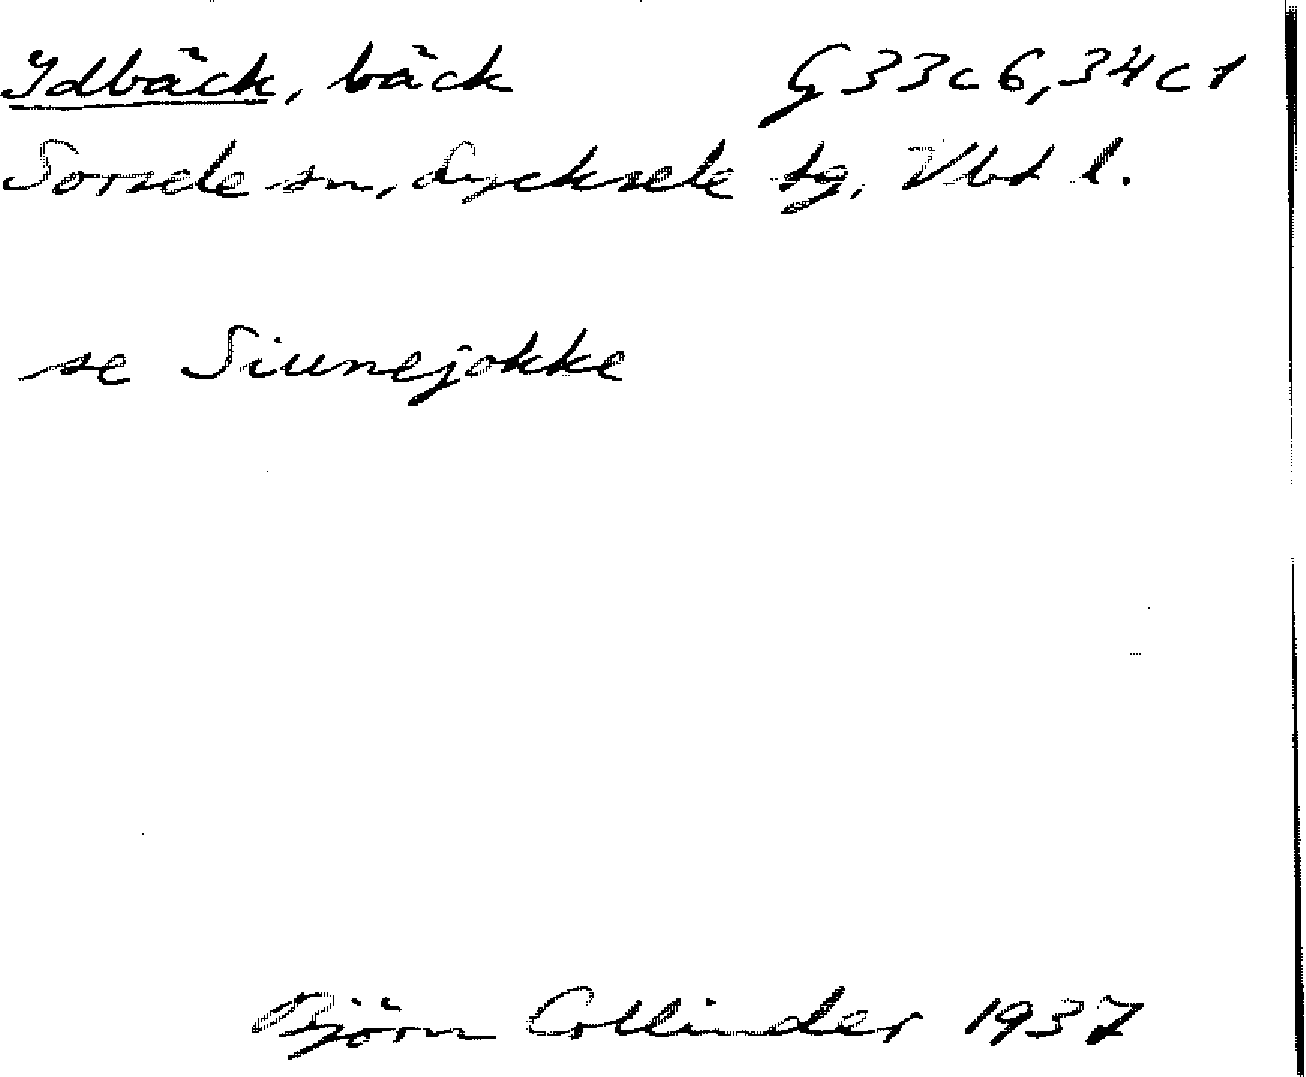 Idbäck, bäck G 33 c 6, 34 c 1
Sorsele sn, Lycksele tg, Vbt l.
se Siunejokke
Björn Collinder 1937